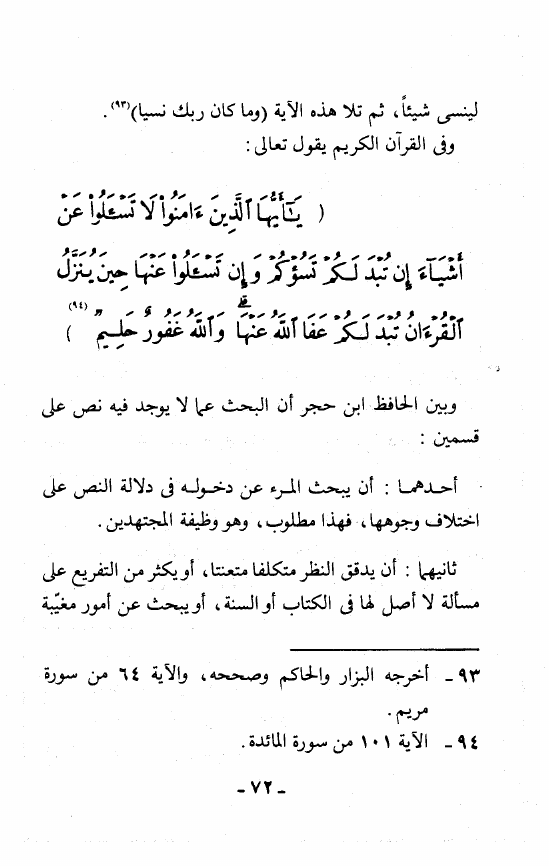 لينسى شيئاً، ثم تلا هذه الآية (وما كان ربك نسيا)(٩٣).
وفى القرآن الكريم يقول تعالى :
( يَٰٓأَيُّهَا ٱلَّذِينَ ءَامَنُوا۟ لَا تَسْـَٔلُوا۟ عَنْ
أَشْيَآءَ إِن تُبْدَ لَكُمْ تَسُؤْكُمْ وَإِن تَسْـَٔلُوا۟ عَنْهَا حِينَ يُنَزَّلُ
ٱلْقُرْءَانُ تُبْدَ لَكُمْ عَفَا ٱللَّهُ عَنْهَا ۗ وَٱللَّهُ غَفُورٌ حَلِيمٌ (٩٤) )
وبين الحافظ ابن حجر أن البحث عما لا يوجد فيه نص على
قسمين :
أحدهما : أن يبحث المرء عن دخوله فى دلالة النص على
اختلاف وجوهها، فهذا مطلوب، وهو وظيفة المجتهدين.
ثانيهما : أن يدقق النظر متكلفا متعنتا، أو يكثر من التفريع على
مسألة لا أصل لها فى الكتاب أو السنة، أو يبحث عن أمور مغيّبة
٩٣ـ أخرجه البزار والحاكم وصححه، والآية ٦٤ من سورة
مريم.
٩٤ـ الآية ١٠١ من سورة المائدة.
ـ ٧٢ ـ